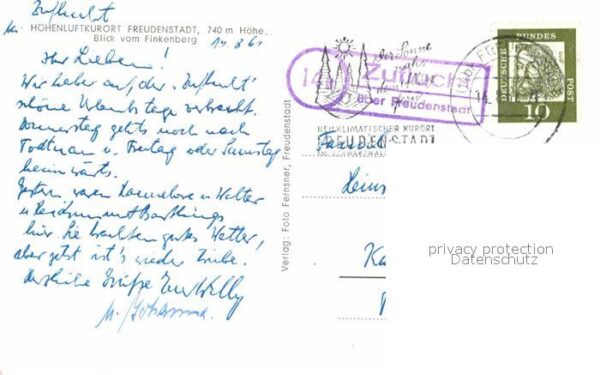 Zuflucht
HÖHENLUFTKURORT FREUDENSTADT, 740 m Höhe
Blick vom Finkenberg
14.8.61
Ihr Lieben!
Wir haben auf der "Zuflucht"
schöne Urlaubstage verbracht.
Donnerstag geht's noch nach
Todtnau u. Freitag oder Samstag
heimwärts.
Gestern waren Hannelore u. Walter
hier. Sie brachten gutes Wetter,
aber jetzt ist's wieder trübe.
Herzliche Grüße Euer Willy
u. Johanna.
Verlag: Foto Fernsner, Freudenstadt
Zuflucht
über Freudenstadt
der Sonne
HEILKLIMATISCHER KURORT
FREUDENSTADT
DEUTSCHE BUNDESPOST
10
Heinz
privacy protection
Datenschutz